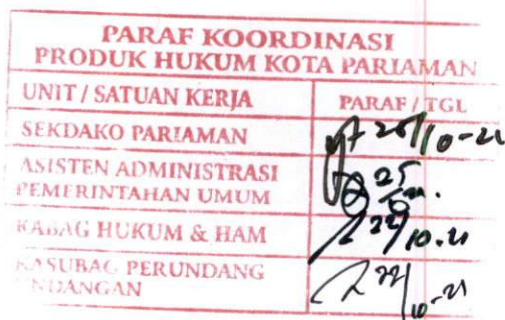 PARAF KOORDINASI
PRODUK HUKUM KOTA PARIAMAN
UNIT / SATUAN KERJA PARAF / TGL
SEKDAKO PARIAMAN 26/10-21
ASISTEN ADMINISTRASI
PEMERINTAHAN UMUM 25
KABAG HUKUM & HAM 22/10.21
KASUBAG PERUNDANG
UNDANGAN 22/10-21